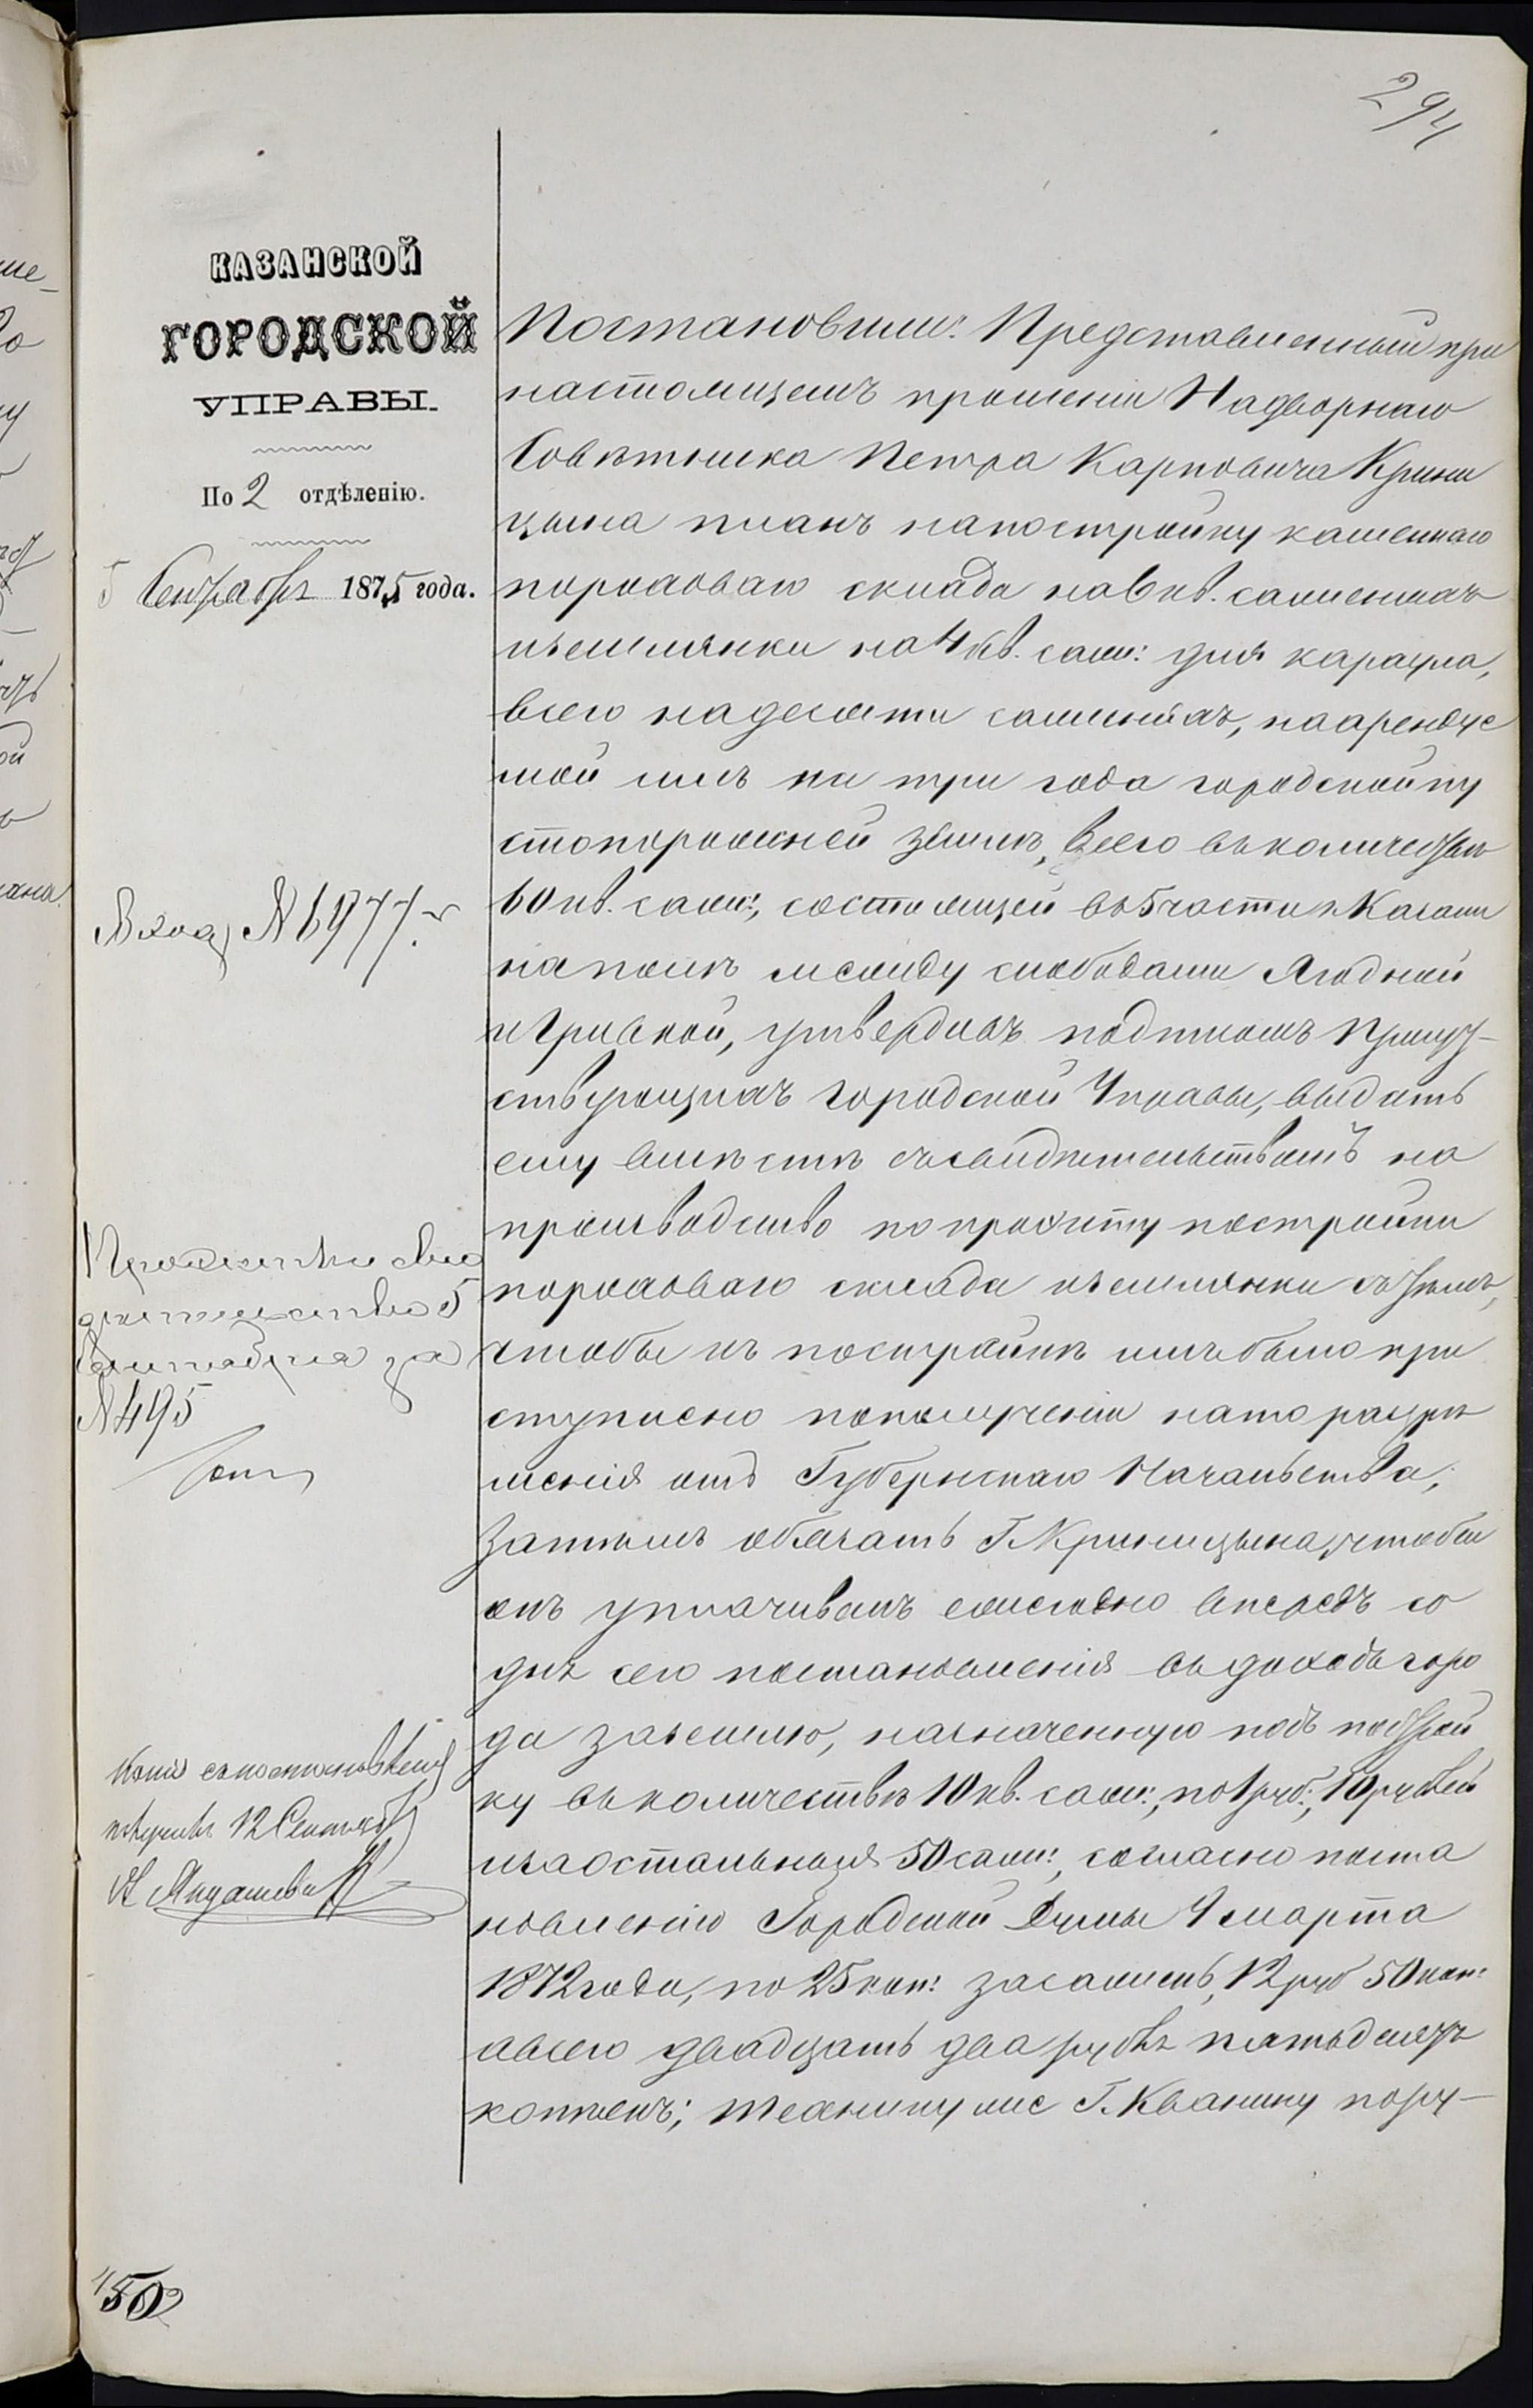 294
КАЗАНСКОЙ
ГОРОДСКОЙ
УПРАВЫ.
По 2 отдѣленію.
5 Сентября 1875 года.
Вход № 6977.
свидѣтельство 5
Сентября за
№ 495
Копію съ постановленія
получилъ 12 Сентября
150
Постановили: Представленный при
настоящемъ прошеніи Надворнаго
Совѣтника Петра Карповича Крини
цына планъ на постройку каменнаго
пороховаго склада на 6 кв. саженяхъ
и землянки на 4 кв. саж: для караула,
всего на десяти саженяхъ, на арендуе
мой имъ на три года городской пу
стопорожней землѣ, всего въ количествѣ
60 кв. саж:, состоящей въ 5 части г. Казани
на полѣ между слободами Ягодной
и Гривкой, утвердивъ подписомъ Присут-
ствующихъ Городской Управы, выдать
ему вмѣстѣ съ свидѣтельствомъ на
производство по проэкту постройки
пороховаго склада и землянки съ тѣмъ,
чтобы къ постройкѣ имъ было при
ступлено по полученіи на то разрѣ
шенія отъ Губернскаго Начальства,
Затѣмъ обязать Г. Криницына, чтобы
онъ уплачивалъ ежегодно впередъ со
дня сего постановленія въ доходъ горо
да за землю, назначенную подъ построй
ку въ количествѣ 10 кв. саж:, по 1 руб:, 10 рублей
и за остальныя 50 саж:, согласно поста
новленію Городской Думы 4 марта
1872 года, по 25 коп: за сажень, 12 руб 50 коп:
а всего двадцать два рубля пятьдесятъ
копѣекъ; Технику же Г. Кванину пору-